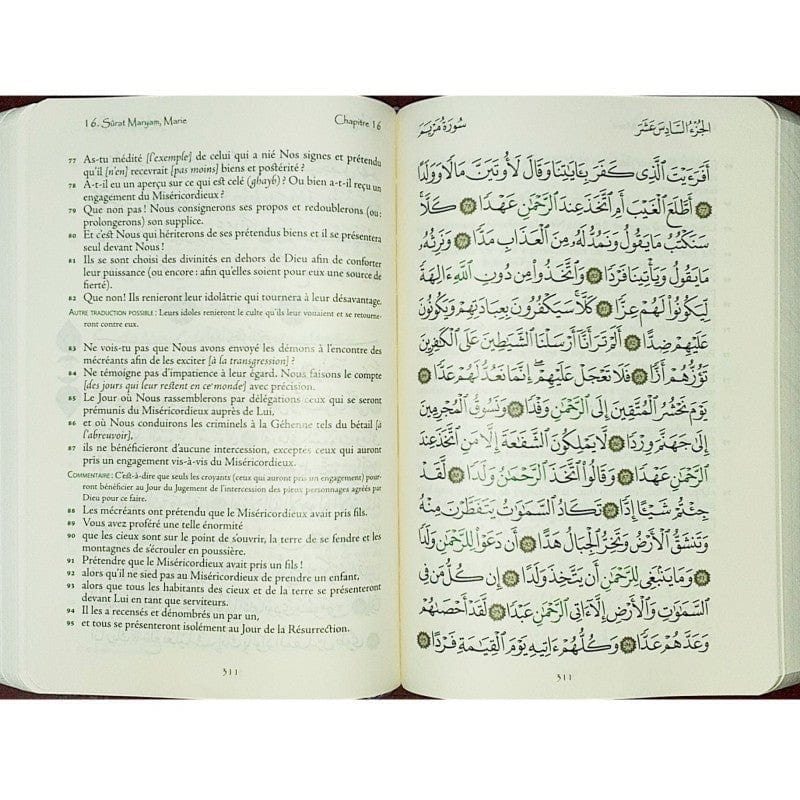 16. Sûrat Maryam, Marie Chapitre 16
77 As-tu médité [l'exemple] de celui qui a nié Nos signes et prétendu
qu'il [n'en] recevrait [pas moins] biens et postérité ?
78 A-t-il eu un aperçu sur ce qui est celé (ghayb) ? Ou bien a-t-il reçu un
engagement du Miséricordieux ?
79 Que non pas ! Nous consignerons ses propos et redoublerons (ou :
prolongerons) son supplice.
80 Et c'est Nous qui hériterons de ses prétendus biens et il se présentera
seul devant Nous !
81 Ils se sont choisi des divinités en dehors de Dieu afin de conforter
leur puissance (ou encore : afin qu'elles soient pour eux une source de
fierté).
82 Que non! Ils renieront leur idolâtrie qui tournera à leur désavantage.
Autre traduction possible : Leurs idoles renieront le culte qu'ils leur vouaient et se retourne-
ront contre eux.
83 Ne vois-tu pas que Nous avons envoyé les démons à l'encontre des
mécréants afin de les exciter [à la transgression] ?
84 Ne témoigne pas d'impatience à leur égard. Nous faisons le compte
[des jours qui leur restent en ce monde] avec précision.
85 Le Jour où Nous rassemblerons par délégations ceux qui se seront
prémunis du Miséricordieux auprès de Lui,
86 et où Nous conduirons les criminels à la Géhenne tels du bétail [à
l'abreuvoir],
87 ils ne bénéficieront d'aucune intercession, exceptés ceux qui auront
pris un engagement vis-à-vis du Miséricordieux.
Commentaire : C'est-à-dire que seuls les croyants (ceux qui auront pris un engagement) pour-
ront bénéficier au Jour du Jugement de l'intercession des pieux personnages agréés par
Dieu pour ce faire.
88 Les mécréants ont prétendu que le Miséricordieux avait pris fils.
89 Vous avez proféré une telle énormité
90 que les cieux sont sur le point de s'ouvrir, la terre de se fendre et les
montagnes de s'écrouler en poussière.
91 Prétendre que le Miséricordieux avait pris un fils !
92 alors qu'il ne sied pas au Miséricordieux de prendre un enfant,
93 alors que tous les habitants des cieux et de la terre se présenteront
devant Lui en tant que serviteurs.
94 Il les a recensés et dénombrés un par un,
95 et tous se présenteront isolément au Jour de la Résurrection.
311
الجزء السادس عشر سورة مريم
أَفَرَءَيْتَ ٱلَّذِى كَفَرَ بِـَٔايَـٰتِنَا وَقَالَ لَأُوتَيَنَّ مَالًا وَوَلَدًا
٧٧ أَطَّلَعَ ٱلْغَيْبَ أَمِ ٱتَّخَذَ عِندَ ٱلرَّحْمَـٰنِ عَهْدًا ٧٨ كَلَّا ۚ
سَنَكْتُبُ مَا يَقُولُ وَنَمُدُّ لَهُۥ مِنَ ٱلْعَذَابِ مَدًّا ٧٩ وَنَرِثُهُۥ
مَا يَقُولُ وَيَأْتِينَا فَرْدًا ٨٠ وَٱتَّخَذُوا۟ مِن دُونِ ٱللَّهِ ءَالِهَةً
لِّيَكُونُوا۟ لَهُمْ عِزًّا ٨١ كَلَّا ۚ سَيَكْفُرُونَ بِعِبَادَتِهِمْ وَيَكُونُونَ
عَلَيْهِمْ ضِدًّا ٨٢ أَلَمْ تَرَ أَنَّآ أَرْسَلْنَا ٱلشَّيَـٰطِينَ عَلَى ٱلْكَـٰفِرِينَ
تَؤُزُّهُمْ أَزًّا ٨٣ فَلَا تَعْجَلْ عَلَيْهِمْ ۖ إِنَّمَا نَعُدُّ لَهُمْ عَدًّا ٨٤
يَوْمَ نَحْشُرُ ٱلْمُتَّقِينَ إِلَى ٱلرَّحْمَـٰنِ وَفْدًا ٨٥ وَنَسُوقُ ٱلْمُجْرِمِينَ
إِلَىٰ جَهَنَّمَ وِرْدًا ٨٦ لَّا يَمْلِكُونَ ٱلشَّفَـٰعَةَ إِلَّا مَنِ ٱتَّخَذَ عِندَ
ٱلرَّحْمَـٰنِ عَهْدًا ٨٧ وَقَالُوا۟ ٱتَّخَذَ ٱلرَّحْمَـٰنُ وَلَدًا ٨٨ لَّقَدْ
جِئْتُمْ شَيْـًٔا إِدًّا ٨٩ تَكَادُ ٱلسَّمَـٰوَٰتُ يَتَفَطَّرْنَ مِنْهُ
وَتَنشَقُّ ٱلْأَرْضُ وَتَخِرُّ ٱلْجِبَالُ هَدًّا ٩٠ أَن دَعَوْا۟ لِلرَّحْمَـٰنِ وَلَدًا
٩١ وَمَا يَنۢبَغِى لِلرَّحْمَـٰنِ أَن يَتَّخِذَ وَلَدًا ٩٢ إِن كُلُّ مَن فِى
ٱلسَّمَـٰوَٰتِ وَٱلْأَرْضِ إِلَّآ ءَاتِى ٱلرَّحْمَـٰنِ عَبْدًا ٩٣ لَّقَدْ أَحْصَىٰهُمْ
وَعَدَّهُمْ عَدًّا ٩٤ وَكُلُّهُمْ ءَاتِيهِ يَوْمَ ٱلْقِيَـٰمَةِ فَرْدًا ٩٥
311